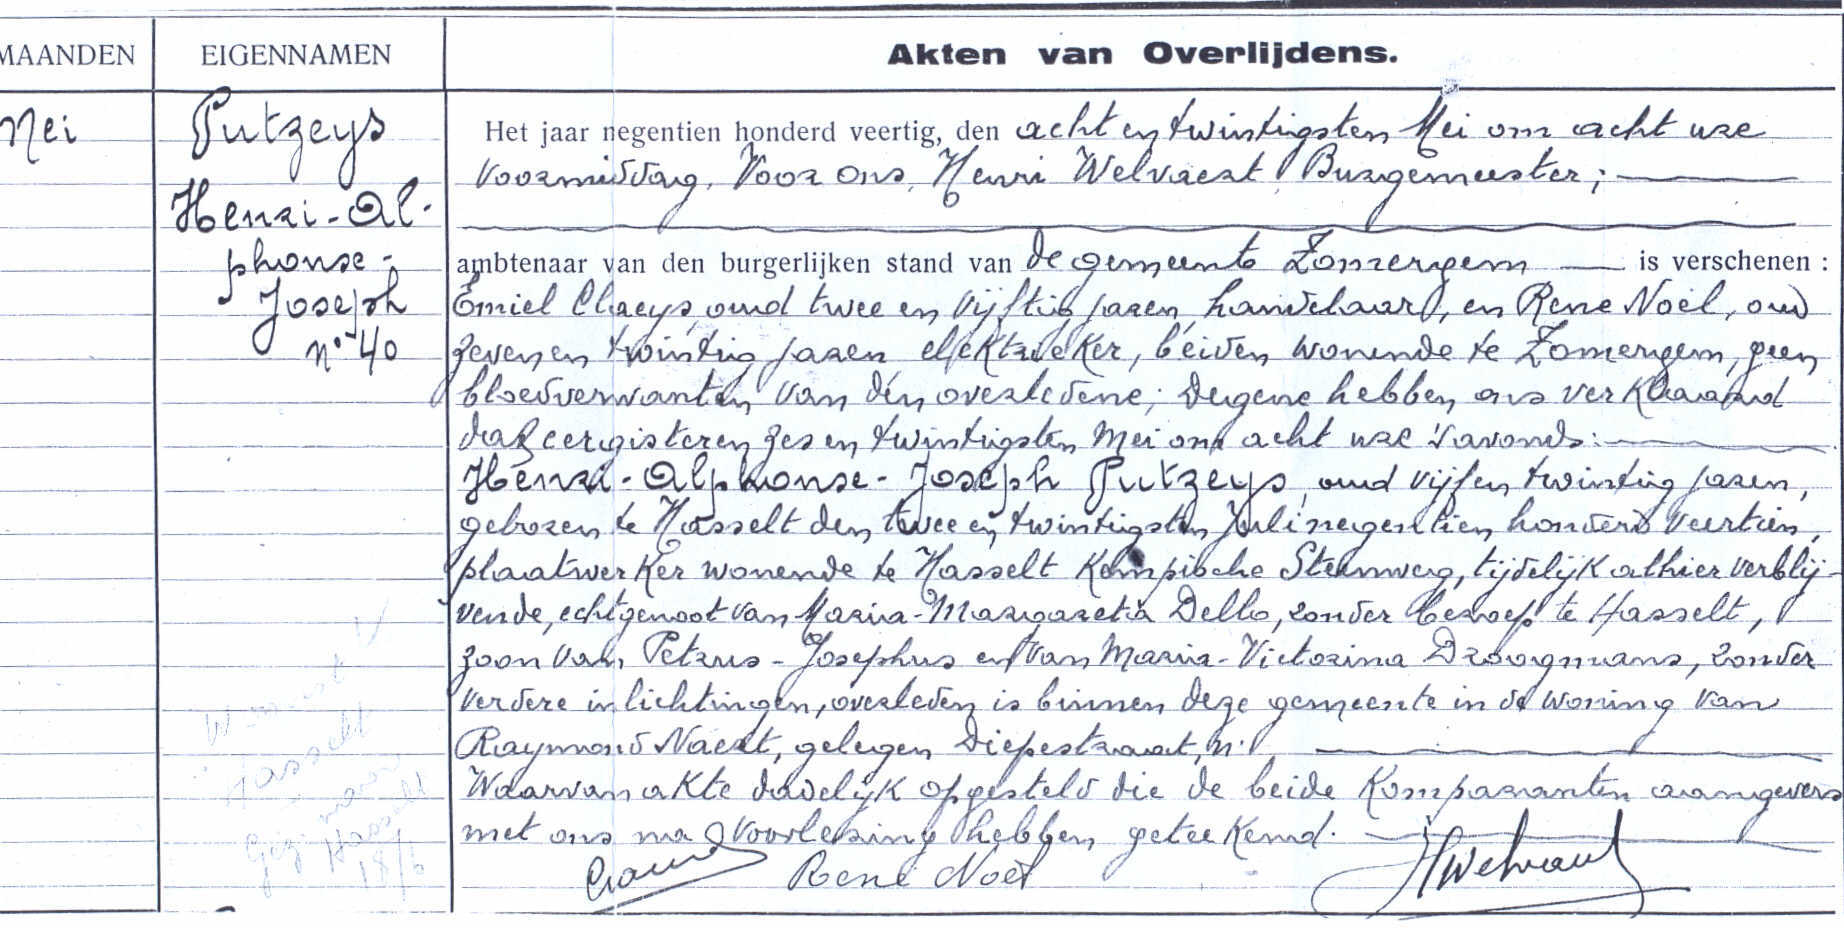 MAANDEN EIGENNAMEN Akten van Overlijdens.
Mei
Putzeys
Henri-Al-
phonse-
Joseph
n° 40
Het jaar negentien honderd veertig, den acht en twintigsten Mei om acht ure
voormiddag, Voor ons, Henri Welvaert, Burgemeester;
ambtenaar van den burgerlijken stand van de gemeente Zomergem is verschenen :
Emiel Claeys, oud twee en vijftig jaren, handelaar, en René Noël, oud
zeven en twintig jaren elektrieker, beiden wonende te Zomergem, geen
bloedverwanten van den overledene; Degene hebben ons verklaard
dat eergisteren zes en twintigsten Mei om acht ure 's avonds:
Henri-Alphonse-Joseph Putzeys, oud vijf en twintig jaren,
geboren te Hasselt den twee en twintigsten Juli negentien honderd veertien,
plaatwerker wonende te Hasselt Kempische Steenweg, tijdelijk alhier verblij-
vende, echtgenoot van Maria-Margareta Dello, zonder beroep te Hasselt,
zoon van Petrus-Josephus en van Maria-Victorina Droogmans, zonder
verdere inlichtingen, overleden is binnen deze gemeente in de woning van
Raymond Naert, gelegen Diepestraat, n.
Waarvan akte dadelijk opgesteld die de beide Komparanten aangevers
met ons na voorlezing hebben geteekend.
René Noël HWelvaert
Hasselt
18/6